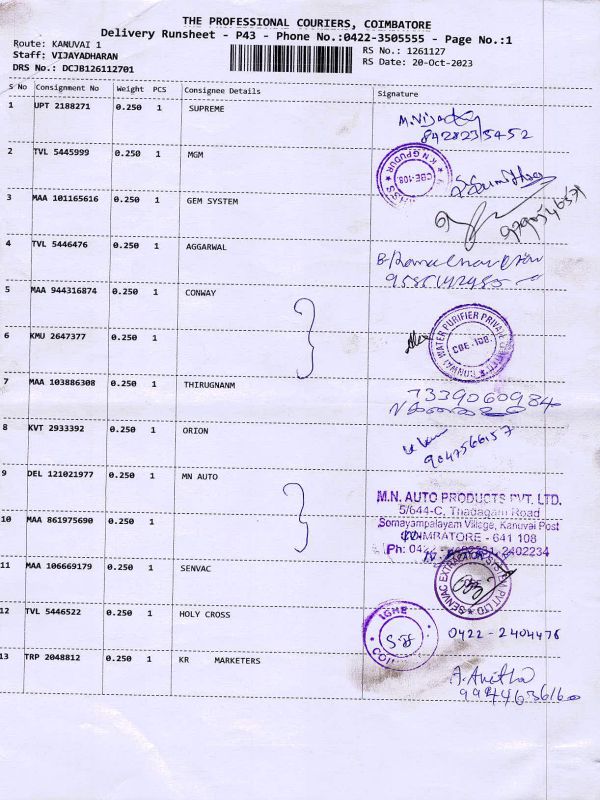 THE PROFESSIONAL COURIERS, COIMBATORE
Delivery Runsheet - P43 - Phone No.:0422-3505555 - Page No.:1
Route: KANUVAI 1
Staff: VIJAYADHARAN
DRS No.: DCJB126112701
RS No.: 1261127
RS Date: 20-Oct-2023
S No Consignment No Weight PCS Consignee Details Signature
1 UPT 2188271 0.250 1 SUPREME
8428235452
2 TVL 5445999 0.250 1 MGM
CBE-108
3 MAA 101165616 0.250 1 GEM SYSTEM
4 TVL 5446476 0.250 1 AGGARWAL
5 MAA 944316874 0.250 1 CONWAY
WATER PURIFIER PRIVATE
CBE-108
6 KMU 2647377 0.250 1
7 MAA 103886308 0.250 1 THIRUGNANM
7339060984
8 KVT 2933392 0.250 1 ORION
9047566157
9 DEL 121021977 0.250 1 MN AUTO
M.N. AUTO PRODUCTS PVT. LTD.
5/644-C, Thadagam Road
Somayampalayam Village, Kanuvai Post
COIMBATORE - 641 108
10 MAA 861975690 0.250 1
2402234
11 MAA 106669179 0.250 1 SENVAC
SENVAC EXTRACTION SYSTEM PVT LTD
12 TVL 5446522 0.250 1 HOLY CROSS
0422-2404476
13 TRP 2048812 0.250 1 KR MARKETERS
A. Anitha